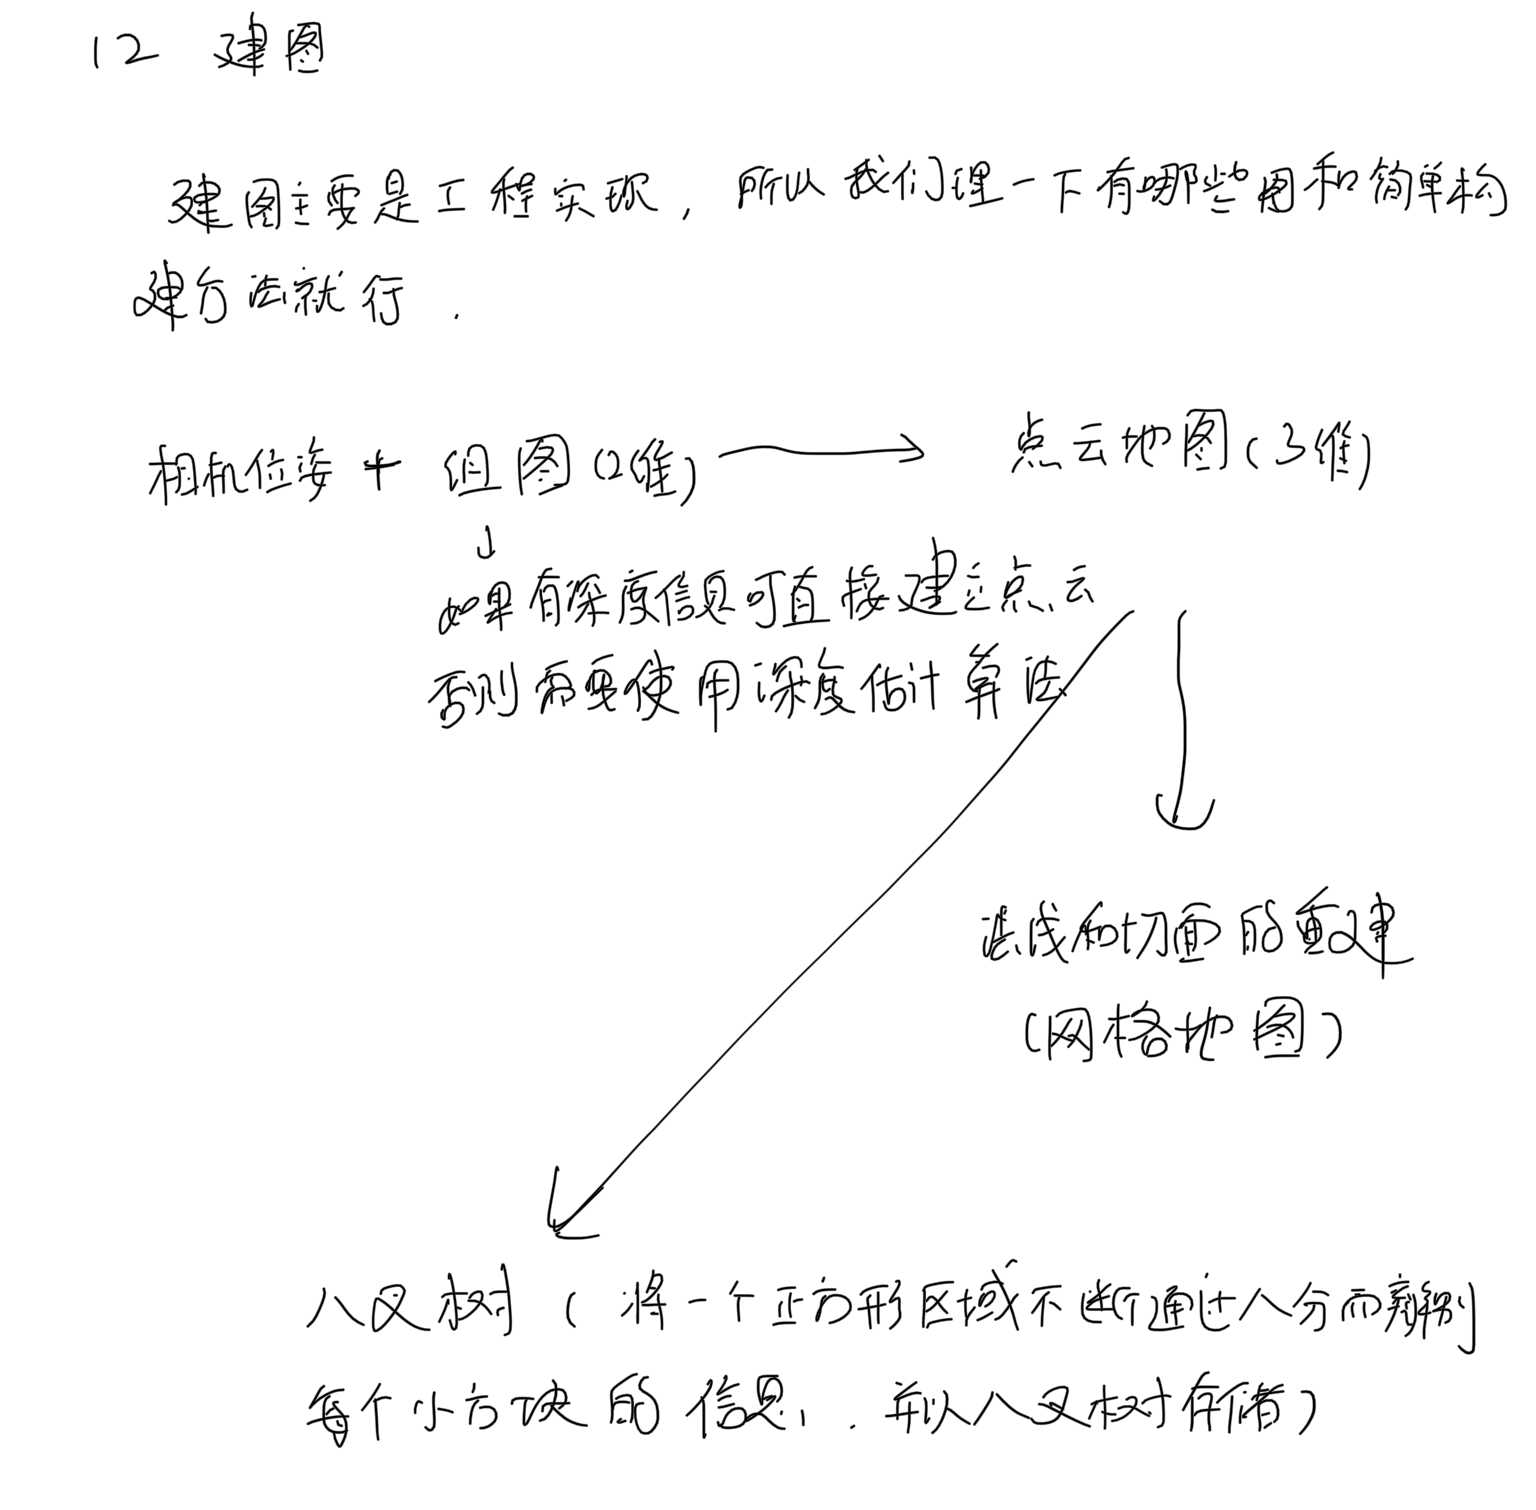 12 建图
建图主要是工程实现，所以我们理一下有哪些图和简单构
建方法就行．
相机位姿 + 组图(2维) → 点云地图(3维)
↓
如果有深度信息可直接建立点云
否则需要使用深度估计算法
法线和切面的重建
(网格地图)
八叉树 ( 将一个正方形区域不断通过八分而
每个小方块的信息，．并以八叉树存储)